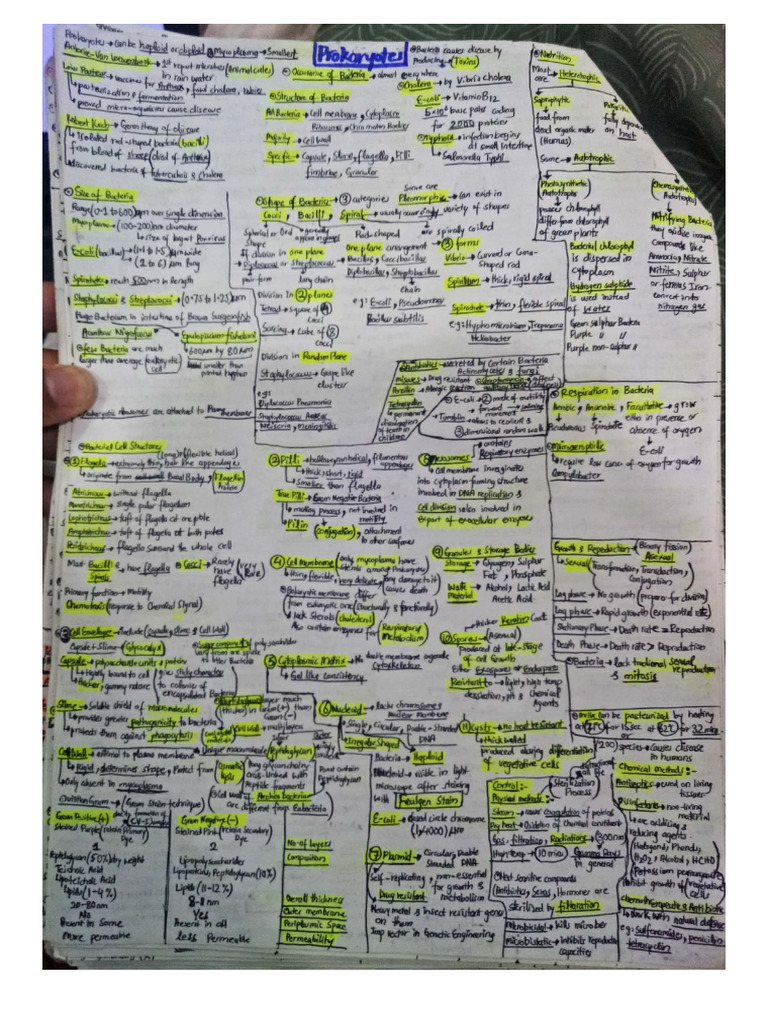 Prokaryotes
Prokaryotes → can be haploid or diploid
Mycoplasma → Smallest
Antonie-Van Leeuwenhoek → 1st report microbes (Animalcules)
in rain water
Louis Pasteur → vaccines for Anthrax, fowl cholera, rabies
→ pasteurization & fermentation
→ proved micro-organisms cause disease
Robert Koch → Germ theory of disease
→ Isolated rod-shaped bacteria (bacilli)
from blood of sheep (died of Anthrax)
→ discovered bacteria of tuberculosis & cholera
Occurance of Bacteria → almost everywhere
Structure of Bacteria
All Bacteria → Cell membrane, Cytoplasm
Ribosomes, Chromatin Bodies
Majority → Cell Wall
Specific → Capsule, Slime, flagella, Pilli
fimbriae, Granules
Bacteria causes disease by
Producing → Toxins
Cholera → by Vibrio cholera
E-coli → Vitamin B12
for 2000 proteins
Typhoid → infection begins
at small intestine
Salmonella Typhi
Nutrition
Most are → Heterotrophic
Saprophytic
food from
dead organic matter
(Humus)
Parasitic
fully dependent
on host
Some → Autotrophic
Photosynthetic
Autotrophs
possess chlorophyll
differ from chlorophyll
of green plants
Bacterial chlorophyll
is dispersed in
cytoplasm
Hydrogen sulphide
is used instead
of water
Green Sulphur Bacteria
Purple " "
Purple non-sulphur "
Chemosynthetic
Autotrophs
Nitrifying Bacteria
they oxidise inorganic
compounds like
Ammonia, Nitrate
Nitrite, Sulphur
or ferrous Iron
convert into
nitrogen gas
Size of Bacteria
Range (0.1 to 600)µm over single dimension
Mycoplasma → (100-200)nm diameter
→ size of largest Poxvirus
E-coli (bacillus) → (1.1 to 1.5)µm wide
(2 to 6)µm long
Spirochete → reach 500µm in length
Staphylococci & Streptococci → (0.75 to 1.25)µm
Huge Bacterium in intestine of Brown Surgeonfish
Acanthurus Nigrofuscus → Epulopiscium fishelsoni
→ 600µm by 80µm
few Bacteria are much
larger than average eukaryotic
cell
Shape of Bacteria → 3 categories
Cocci, Bacilli, Spiral
Some are
Pleomorphic → can exist in
variety of shapes
Spherical or Oval
Shape
Rod-shaped
are spirally coiled
Division in 2 planes
Tetrad → square of 4
cocci
Sarcina → Cube of 8
cocci
Division in Random Plane
Staphylococcus → Grape like
cluster
e.g:
Diplococcus Pneumonia
Staphylococcus Aureus
Neisseria meningitidis
One plane arrangement
Bacillus, Coccobacillus
Diplobacillus, Streptobacillus
chain
e.g: E-coli, Pseudomonas
Bacillus subtilis
3 forms
Vibrio → Curved or Coma-
Shaped rod
Spirillum → thick, rigid spiral
Spirochete → thin, flexible spiral
e.g: Hyphomicrobium, Treponema
Helicobacter
Antibiotics → secreted by Certain Bacteria
Actinomycetes & fungi
misuse → Drug resistant
Tetracycline
→ permanent
discoloration
of teeth in
children
Respiration in Bacteria
Aerobic, Anaerobic, Facultative → grow
either in presence or
absence of oxygen
E-coli
Microaerophilic
→ require low conc of oxygen for growth
Campylobacter
Bacterial Cell Structures
1 Flagella → extremely thin, hair like appendages
→ originate from Basal Body, Flagellin
Atrichous → without flagella
Monotrichous → single polar flagellum
Lophotrichous → tuft of flagella at one pole
Amphitrichous → tuft of flagella at both poles
Peritrichous → flagella surround the whole cell
Most Bacilli & Spiral have flagella
Cocci → Rarely have flagella
Primary function → Motility
Chemotaxis (response to Chemical Stimul)
2 Pilli → hollow, nonhelical, filamentous
appendages
→ thick, short, rigid
→ Smaller than flagella
True Pilli → Gram Negative Bacteria
→ mating process, not involved in
motility
Pilin → conjugation, attachment
to other surfaces
Mesosomes
Cell membrane invaginates
into cytoplasm forming structure
involved in DNA replication &
Cell division → also involved in
export of exocellular enzymes
contains
Respiratory enzymes
4 Cell Membrane → only mycoplasma have
sterols among Prokaryotes
→ thin, flexible, very delicate, any damage to it
causes death
Prokaryotic membrane differ
from eukaryotic one (structurally & functionally)
→ lack Sterols cholesterol
Also contain enzymes for Respiratory
Metabolism
9 Granules & Storage Bodies
Storage → Glycogen, Sulphur
Fat, Phosphate
Waste Material → Alcohol, Lactic Acid
Acetic Acid
10 Spores → (Asexual)
produced at late-stage
of cell Growth
Either Exospores or Endospores
Resistant to → light, high temp
desiccation, pH & Chemical
Agents
Growth & Reproduction → Binary fission
Asexual
→ Sexual (Transformation, Transduction,
Conjugation)
Lag phase → No growth (prepare for division)
Log phase → Rapid growth (exponential rate)
Stationary Phase → Death rate = Reproduction
Death Phase → Death rate > Reproduction
Bacteria → lack traditional sexual
reproduction
& mitosis
3 Cell Envelope → include Capsule, slime & Cell Wall
Capsule + Slime → Glycocalyx
Capsule → polysaccharide units & protein
→ tightly bound to cell
→ thicker, gummy nature
gives sticky character
to colonies of
encapsulated Bacteria
Slime → Soluble shield of Macromolecules
→ provides greater pathogenicity to bacteria
→ protects them against phagocytosis
Cell Wall → external to plasma membrane
→ Rigid, determines shape, Protect from Osmotic
lysis
→ Only absent in mycoplasma
Unique macromolecule Peptidoglycan
Long glycan chains
cross-linked with
Peptide fragments
Cell walls of Archaebacteria
are different from Eubacteria
Christian Gram → (Gram stain technique)
Gram Positive (+)
Stained Purple (retain Primary
Dye)
1
Peptidoglycan (50%) by weight
Teichoic Acid
Lipoteichoic Acid
Lipids (1-4%)
20-80 nm
No
Present in Some
More permeable
Gram Negative (-)
Stained Pink (retain Secondary
Dye)
2
Lipopolysaccharides
Lipoproteins, Peptidoglycan (10%)
Lipids (11-12%)
8-11 nm
Yes
Present in all
Less Permeable
No. of layers
Composition
Overall thickness
Outer membrane
Periplasmic Space
Permeability
5 Cytoplasmic Matrix → No membrane organelle
Cytoskeleton
→ Gel like consistency
6 Nucleoid → lacks chromosome &
Nuclear membrane
→ Single, Circular, Double-Stranded
DNA
→ Irregular Shaped
Bacteria → Haploid
Nucleoid → visible in light
microscope after staining
with Feulgen Stain
E-coli → closed circle chromosome
(1400)µm
7 Plasmid → Circular, Double
Stranded DNA
→ Self-replicating, non-essential
for growth &
metabolism
Drug resistant
Heavy metal & insect resistant genes
on them
Imp vector in Genetic Engineering
11 Cyst → No heat resistant
→ thick walled
produced during differentiation
of vegetative cells
Control:-
Sterilization Process
Physical methods:-
Steam → cause coagulation of proteins
Dry heat → Oxidation of Chemical constituent
Gas, filtration, Radiations (300nm)
High temp → (10 mins) Gamma Rays
in general
Heat sensitive compounds
(Antibiotics, Seras, Hormones are
sterilized by filtration
Microbicidal → kills microbes
Microbistatic → Inhibits Reproductive
capacities
Milk can be pasteurized by heating
at 71°C for 15sec or 62°C for 32 mins
(200) species → causes disease
in humans
Chemical methods:-
Antiseptics → used on living
tissues
Disinfectants → non-living
material
are oxidising &
reducing agents
(Halogens, Phenols,
H2O2, Alcohol, HCHO)
Potassium permanganate
Inhibit growth of vegetative cells
Chemotherapeutic & Antibiotics
→ Work with natural defense
e.g: Sulfonamides, penicillin
tetracyclin